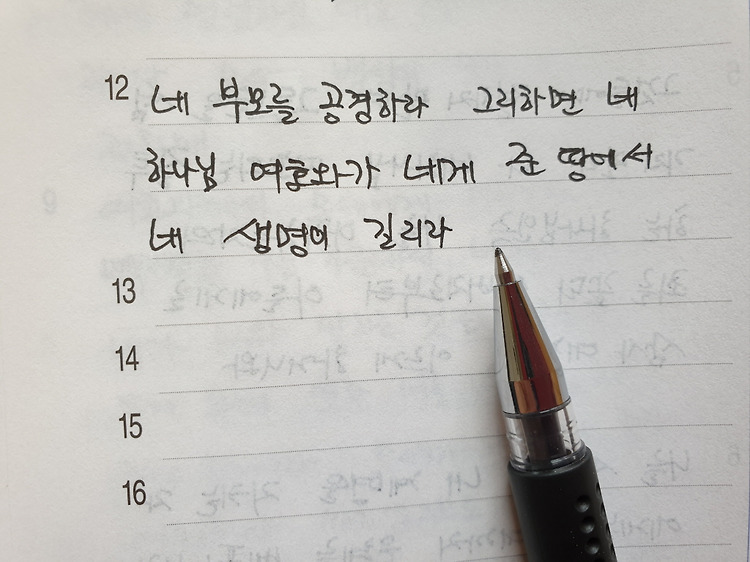 12 네 부모를 공경하라 그리하면 네
하나님 여호와가 네게 준 땅에서
네 생명이 길리라
13
14
15
16